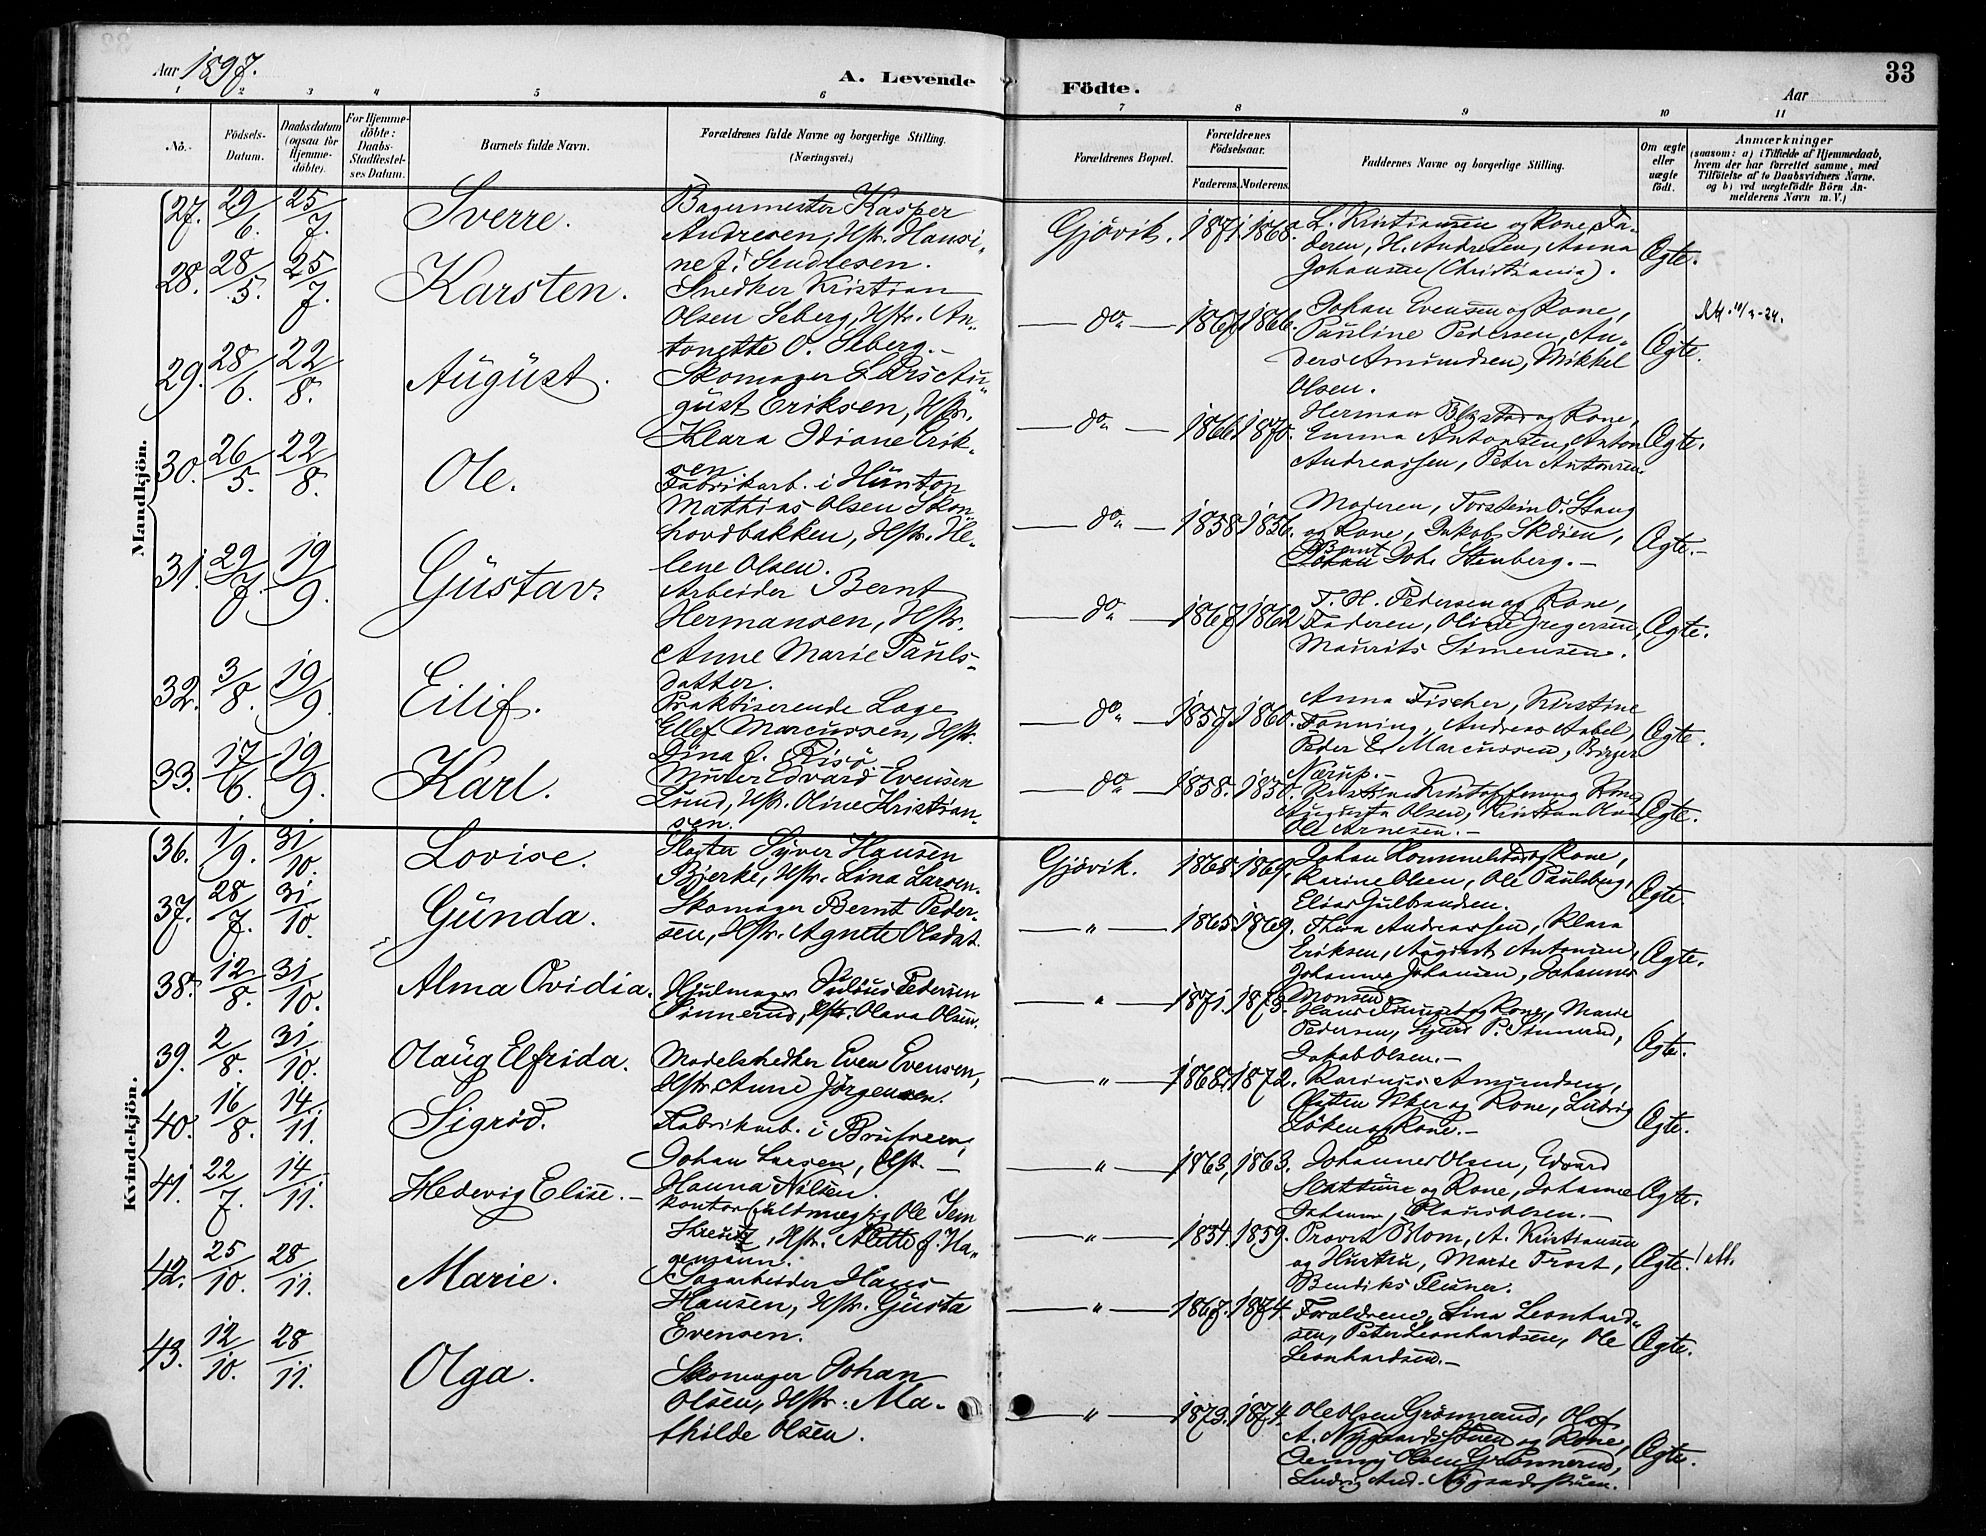 Aar 1897.
A. Levende
Födte.
33
Aar
1 2 3 4 5 6 7 8 9 10 11
No.
Födsels-
Datum.
Daabsdatum
(ogsaa for
Hjemme-
döbte).
For Hjemme-
döbte:
Daabs-
Stadfæstel-
ses Datum.
Barnets fulde Navn.
Forældrenes fulde Navne og borgerlige Stilling.
(Næringsvei.)
Forældrenes Bopæl.
Forældrenes
Födselsaar.
Faderens. Moderens.
Faddernes Navne og borgerlige Stilling.
Om ægte
eller
uægte
født.
Anmærkninger
(saasom: a) i Tilfælde af Hjemmedaab,
hvem der har forrettet samme, med
Tilföielse af to Daabsvidners Navne.
og b) ved uægtefödte Börn An-
melderens Navn m. V.)
Mandkjön.
27. 29/6. 25/7. Sverre.
Bagermester Kasper
Andresen, Hstr. Hansi-
ne f.
Gjövik. 1871. 1868.
L. Kristiansen og Kone, Fa-
deren, H. Andresen, Anna
Johansen (Christiania).
Ægte.
28. 28/5. 25/7. Karsten.
Snedker Kristian
Olsen Seberg, Hstr. An-
tonette O. Seberg.
do 1867. 1866.
Johan Evensen og Kone,
Pauline Pedersen, An-
ders Amundsen, Mikkel
Olsen.
Ægte.
29. 28/6. 22/8. August.
Skomager Lars Au-
gust Eriksen, Hstr.
Klara Idiane Erik-
sen.
do 1866. 1870.
Herman og Kone,
Emma Antonsen, Anton
Andreassen, Peter Antonsen.
Ægte.
30. 26/5. 22/8. Ole.
Fabrikarb. i Hunton
Mathias Olsen Skon-
hovdbakken, Hstr. He-
lene Olsen.
do 1858 1856.
Moderen, Torstein O. Stang
og Kone, Jakob Sköien,
Bernt
Johan Joh. Stenberg.
Ægte.
31. 29/7. 19/9. Gustav.
Arbeider Bernt
Hermansen, Hstr.
Anne Marie Pauls-
datter.
do 1867 1862
T. H. Pedersen og Kone,
Faderen, Oline Gregersen,
Maurits Simensen.
Ægte.
32. 3/8. 19/9. Eilif.
Praktiserende Læge
Ellef Marcussen, Hstr.
Dina f.
do 1857. 1860.
Anna Fischer, Kirstine
Fanning, Andreas Aabel,
Peder E. Marcussen, Birger
Nærup.
Ægte.
33. 17/6. 19/9. Karl.
Murer Edvard Evensen
Lund, Hstr. Oline Kristian-
sen.
do 1858. 1850.
Augusta Olsen, Kristian Olsen
Ole Arnesen.
Ægte.
Kvindekjön.
36. 1/9. 31/10. Lovise.
Slagter Syver Hansen
Bjerke, Hstr. Lina Larsen.
Gjövik. 1868. 1869.
Johan og Kone,
Karine Olsen, Ole Paulsberg,
Elias Gulbrandsen.
Ægte.
37. 28/7. 31/10. Gunda.
Skomager Bernt Peder-
sen, Hstr. Agnete Olsdat.
" 1865 1869.
Thea Andreassen, Klara
Eriksen, August Antonsen,
Johanne Johansen, Johannes
Monsen.
Ægte.
38. 12/8. 31/10. Alma Ovidia.
Hjulmager Julius Pedersen
Sönnerud, Hstr. Olava Olsen.
" 1871. 1873.
Hans og Kone, Marie
Pedersen, P. Sönnerud,
Jakob Olsen.
Ægte.
39. 2/8. 31/10. Olaug Elfrida.
Modelsnedker Even Evensen,
Hstr. Anne Jörgensen.
" 1868. 1872.
Karinus Amundsen,
og Kone, Ludvig
og Kone.
Ægte.
40. 16/8. 14/11. Sigrid.
Fabrikarb. i
Johan Larsen, Hstr.
Hanna Nilsen.
" 1863, 1863.
Johannes Olsen, Edvard
og Kone, Johanne
Johansen, Klaus Olsen.
Ægte.
41. 22/7. 14/11. Hedevig Elise.
Kontorfuldmægtig Ole
Hstr. Alette f. Ha-
gemann.
" 1854. 1859.
Provst Blom, A. Kristiansen
og Hustru, Marie Frost,
Bendiks Plesner.
Ægte.
42. 25/10. 28/11. Marie.
Sagarbeider Hans
Hansen, Hstr. Gusta
Evensen.
" 1867. 1874.
Forældrene, Lina Leonhard-
sen, Peter Leonhardsen, Ole
Leonhardsen.
Ægte.
43. 12/10. 28/11. Olga.
Skomager Johan
Olsen, Hstr. Ma-
thilde Olsen.
" 1873. 1874.
Ole Olsen Grönnerud, Olaf
A. Nygaardsstuen og Kone,
Jenny Olsen Grönnerud,
Ludvig And. Nygaardsstuen.
Ægte.